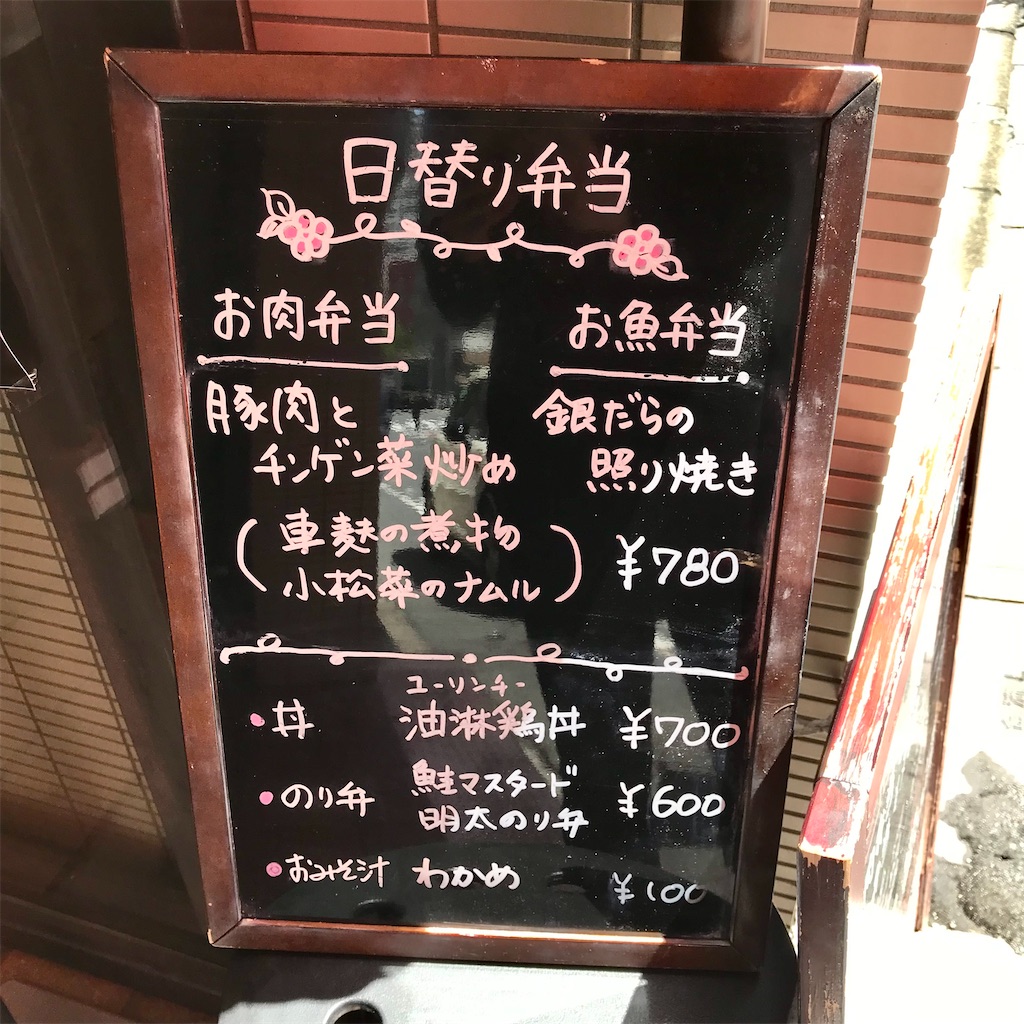 日替り弁当
お肉弁当
豚肉と
チンゲン菜炒め
お魚弁当
銀だらの
照り焼き
(車麩の煮物
小松菜のナムル)
¥780
・丼 油淋鶏丼 ¥700
ユーリンチー
・のり弁 鮭マスタード
明太のり弁 ¥600
・おみそ汁 わかめ ¥100